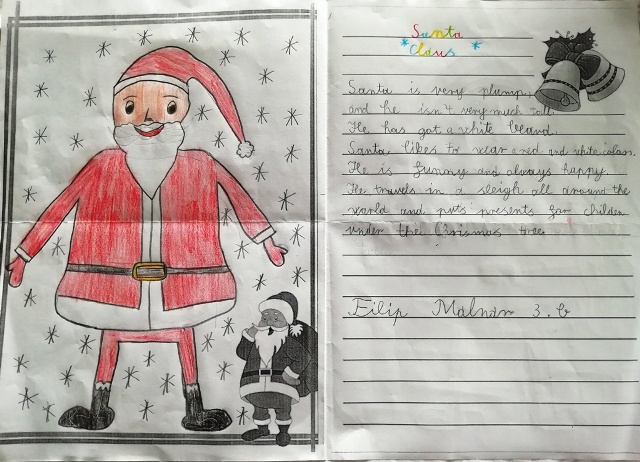 Santa
* Claus *
Santa is very plump,
and he isn't very much tall.
He has got a white beard.
Santa likes to wear a red and white colors.
He is funny and always happy.
He travels in a sleigh all around the
world and puts presents for children
under the Chrismas tree.
Filip Malnar 3. b